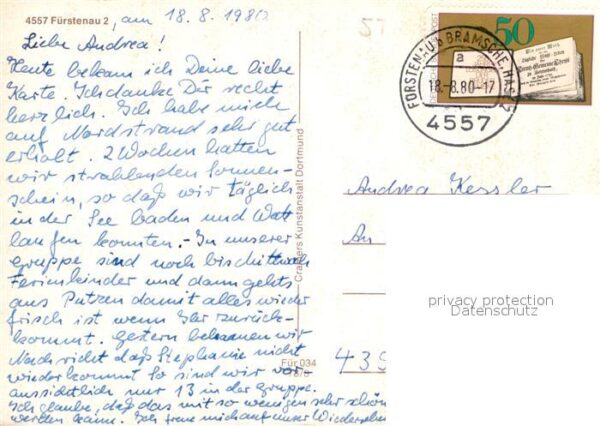 4557 Fürstenau 2, am 18.8.1980
Liebe Andrea!
Heute bekam ich Deine liebe
Karte. Ich danke Dir recht
herzlich. Ich habe mich
auf Nordstrand sehr gut
erholt. 2 Wochen hatten
wir strahlenden Sonnen-
schein, so daß wir täglich
in der See baden und Watt
laufen konnten. - In unserer
Gruppe sind noch bis Mittwoch
Ferienkinder und dann gehts
ans Putzen damit alles wieder
frisch ist wenn Ihr zurück-
kommt. Gestern bekamen wir
Nachricht daß Stephanie nicht
wiederkommt so sind wir vor-
aussichtlich nur 13 in der Gruppe.
Ich glaube, daß das mit so wenigen sehr schön
werden kann. Ich freue mich auf unser Wiedersehen
Cramers Kunstanstalt Dortmund
Für 034
50
FÜRSTENAU b BRAMSCHE
a
18.-8.80-17
4557
Andrea Kessler
An
439
privacy protection
Datenschutz